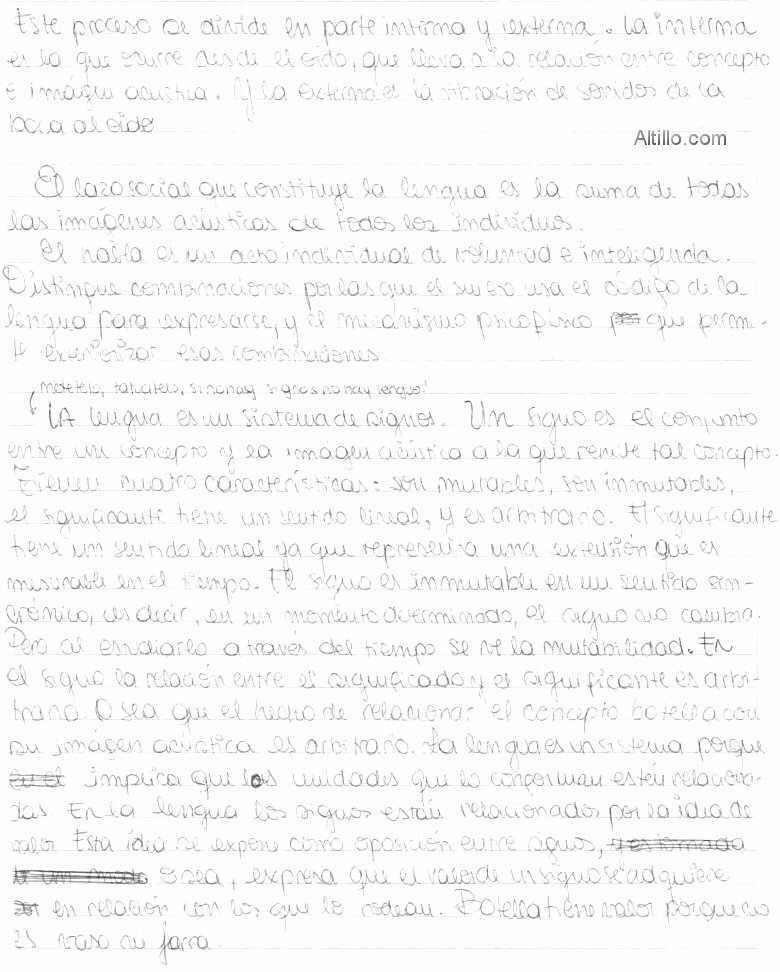 Este proceso se divide en parte interna y externa. La interna
es la que ocurre desde el oido, que lleva a la relación entre concepto
e imágen acústica. Y la externa es la vibración de sonidos de la
boca al oido
Altillo.com
El lazo social que constituye la lengua es la suma de todas
las imágenes acústicas de todos los individuos.
El habla es un acto individual de voluntad e inteligencia.
Distingue combinaciones por las que el sujeto usa el código de la
lengua para expresarse, y el mecanismo psicofísico que permi-
te exteriorizar esas combinaciones
metetelo, si no hay signos no hay lengua!
LA lengua es un sistema de signos. Un signo es el conjunto
entre un concepto y la imagen acústica a la que remite tal concepto.
Tienen cuatro características: son mutables, son inmutables,
el significante tiene un sentido lineal, y es arbitrario. El significante
tiene un sentido lineal ya que representa una extensión que es
mesurable en el tiempo. El signo es inmutable en un sentido sin-
crónico, es decir, en un momento determinado, el signo no cambia.
Pero al estudiarlo a través del tiempo se ve la mutabilidad. En
el signo la relación entre el significado y el significante es arbi-
traria. O sea que el hecho de relacionar el concepto botella con
su imágen acústica es arbitrario. La lengua es un sistema porque
implica que las unidades que lo conforman estén relaciona-
das En la lengua los signos están relacionados por la idea de
valor Esta idea se expone como oposición entre signos,
o sea, expresa que el valor de un signo se adquiere
en relación con los que lo rodean. Botella tiene valor porque no
es vaso ni jarra